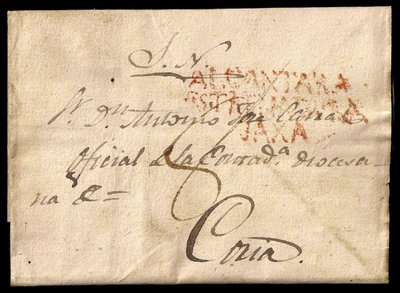 S. N.
ALCANTARA
ESTREMA
BAXA
Sr. Dn. Antonio
Oficial de la Contad.a diocesa-
na &=
8
Coria.